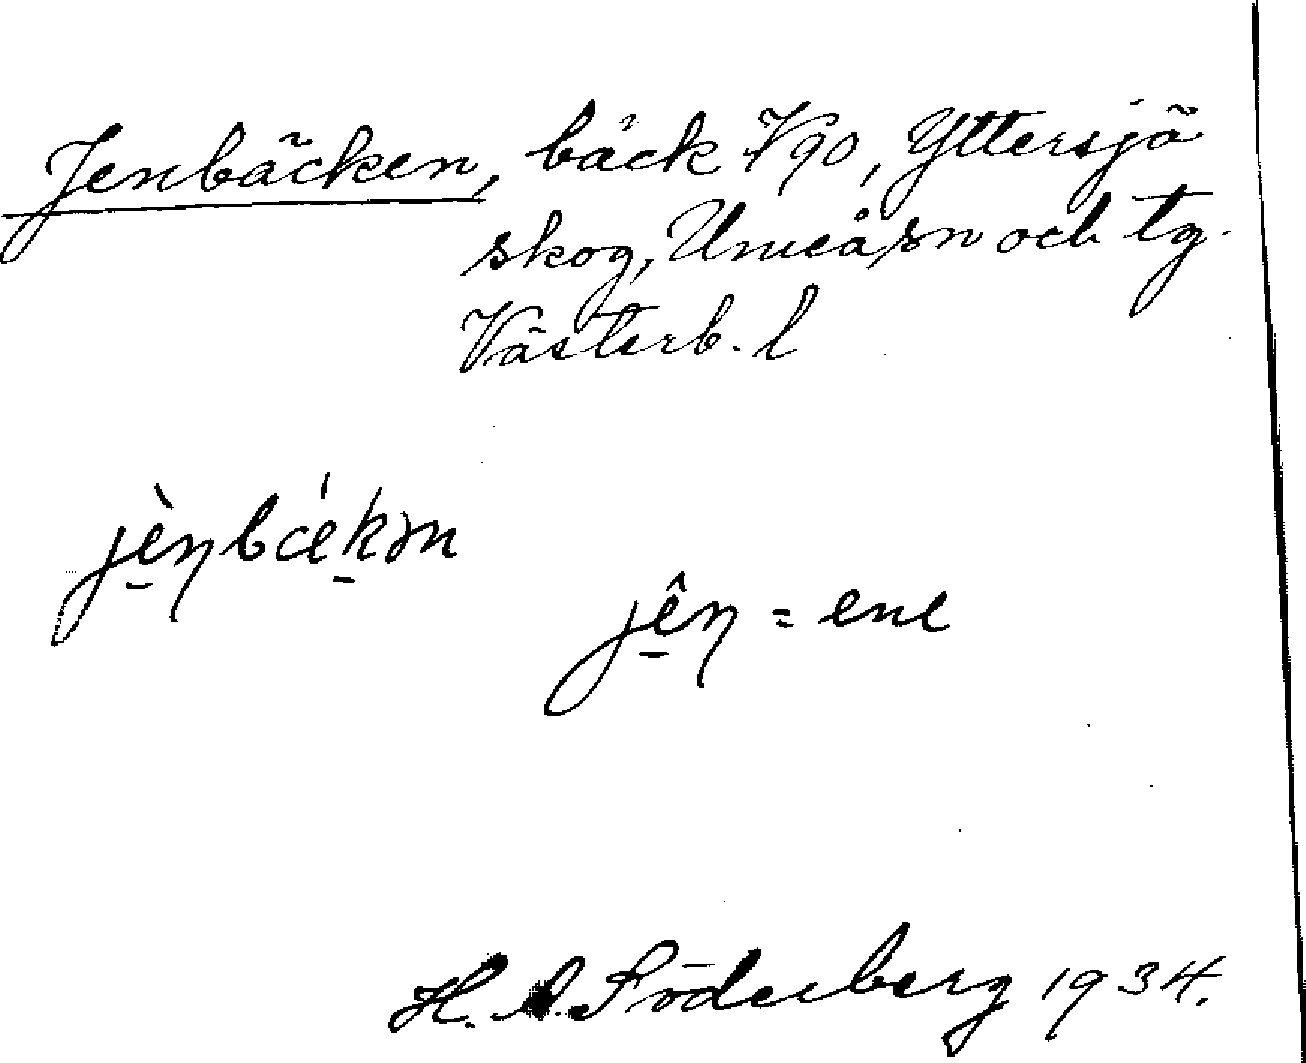 Jenbäcken, bäck V90, Yttersjö
skog, Umeå sn och tg.
Västerb. l
jè̠ŋbǽk̠ən
jê̠ŋ = ene
H. A. Söderberg 1934.